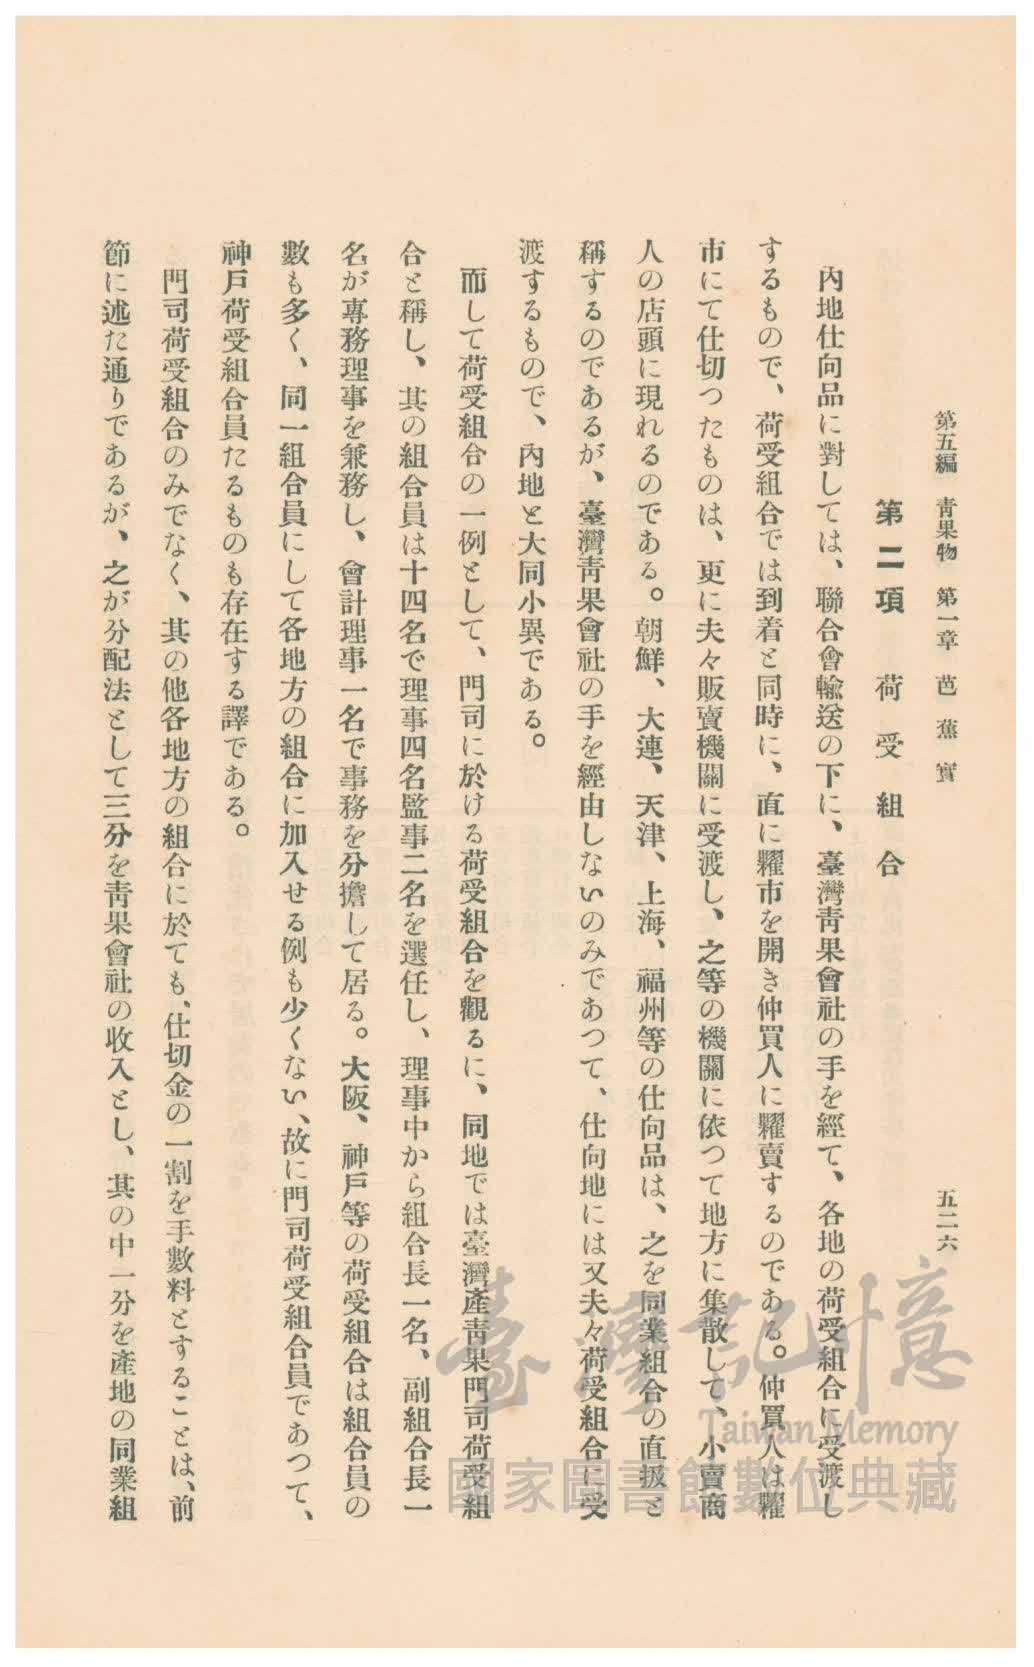 第五編　靑果物　第一章　芭蕉實　五二六
第二項　荷受組合
內地仕向品に對しては、聯合會輸送の下に、臺灣靑果會社の手を經て、各地の荷受組合に受渡し
するもので、荷受組合では到着と同時に、直に糶市を開き仲買人に糶賣するのである。仲買人は糶
市にて仕切つたものは、更に夫々販賣機關に受渡し、之等の機關に依つて地方に集散して、小賣商
人の店頭に現れるのである。朝鮮、大連、天津、上海、福州等の仕向品は、之を同業組合の直扱と
稱するのであるが、臺灣靑果會社の手を經由しないのみであつて、仕向地には又夫々荷受組合に受
渡するもので、內地と大同小異である。
而して荷受組合の一例として、門司に於ける荷受組合を觀るに、同地では臺灣產靑果門司荷受組
合と稱し、其の組合員は十四名で理事四名監事二名を選任し、理事中から組合長一名、副組合長一
名が專務理事を兼務し、會計理事一名で事務を分擔して居る。大阪、神戶等の荷受組合は組合員の
數も多く、同一組合員にして各地方の組合に加入せる例も少くない、故に門司荷受組合員であつて、
神戶荷受組合員たるものも存在する譯である。
門司荷受組合のみでなく、其の他各地方の組合に於ても、仕切金の一割を手數料とすることは、前
節に述た通りであるが、之が分配法として三分を靑果會社の收入とし、其の中一分を產地の同業組
臺灣記憶
Taiwan Memory
國家圖書館數位典藏